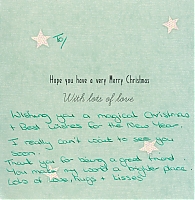 To/
Hope you have a very Merry Christmas
With lots of love
Wishing you a magical Christmas
+ Best wishes for the New Year.
I really can't wait to see you
Soon.
Thank you for being a great friend.
You make my world a brighter place.
Lots of love, hugs + kisses!